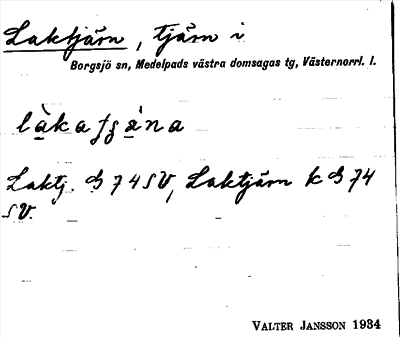 Laktjärn, tjärn i
Borgsjö sn, Medelpads västra domsagas tg, Västernorrl. l.
Laktj. B 74 SV, Laktjärn k B 74
SV.
VALTER JANSSON 1934